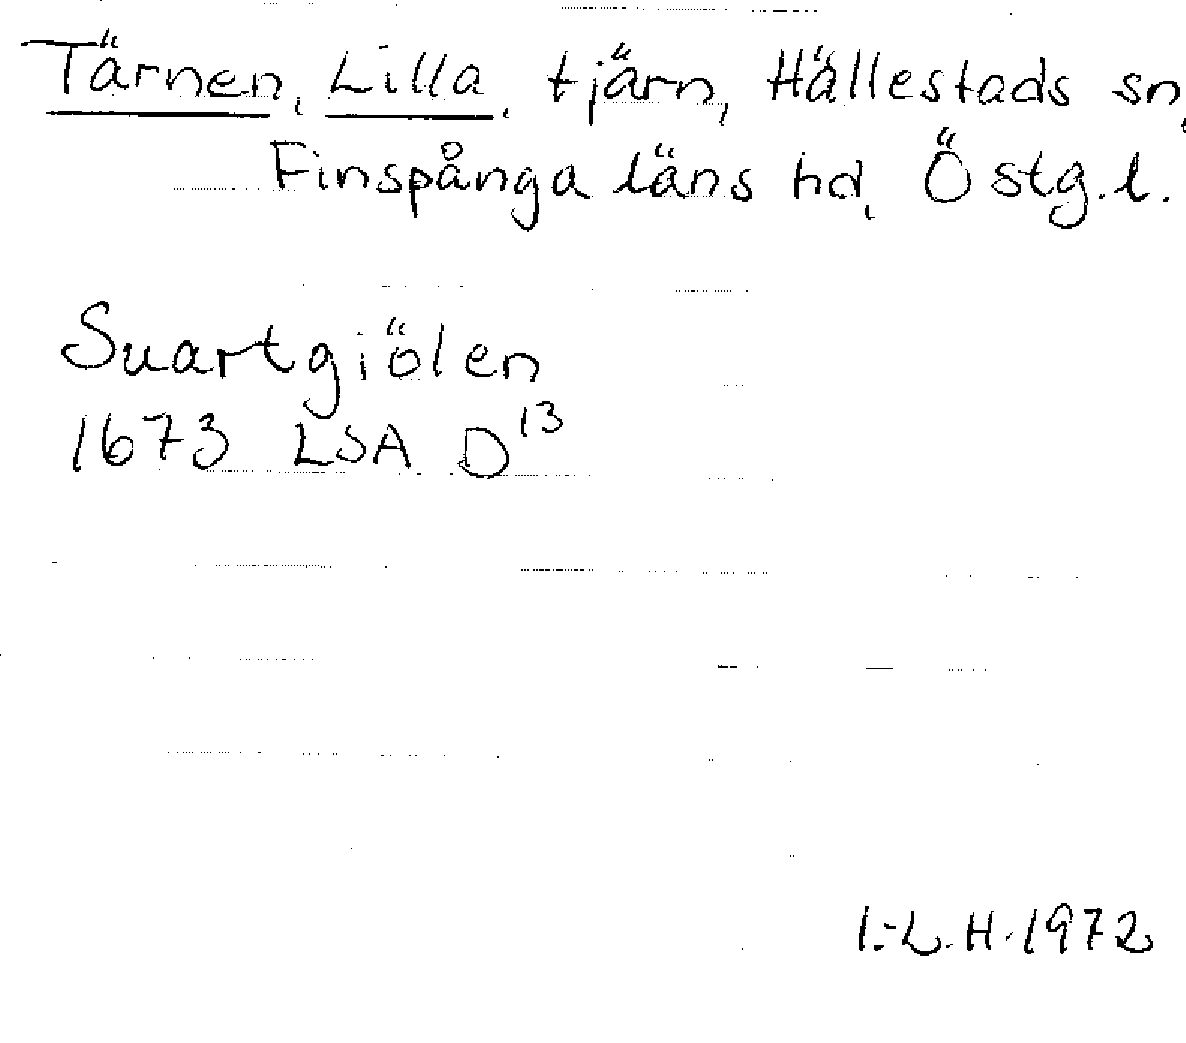 Tärnen, Lilla, tjärn, Hällestads sn,
Finspånga läns hd, Östg.l.
Suartgiölen
1673 LSA D13
I.-L.H. 1972